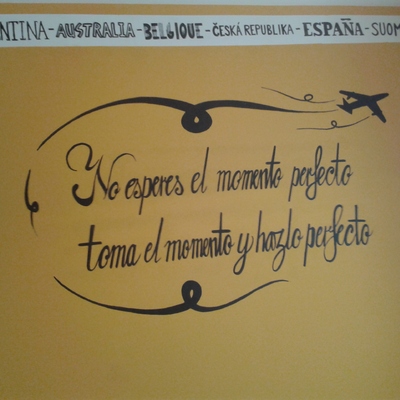 NTINA-AUSTRALIA-BELGIQUE-ČESKÁ REPUBLIKA-ESPAÑA-SUOM
No esperes el momento perfecto
toma el momento y hazlo perfecto